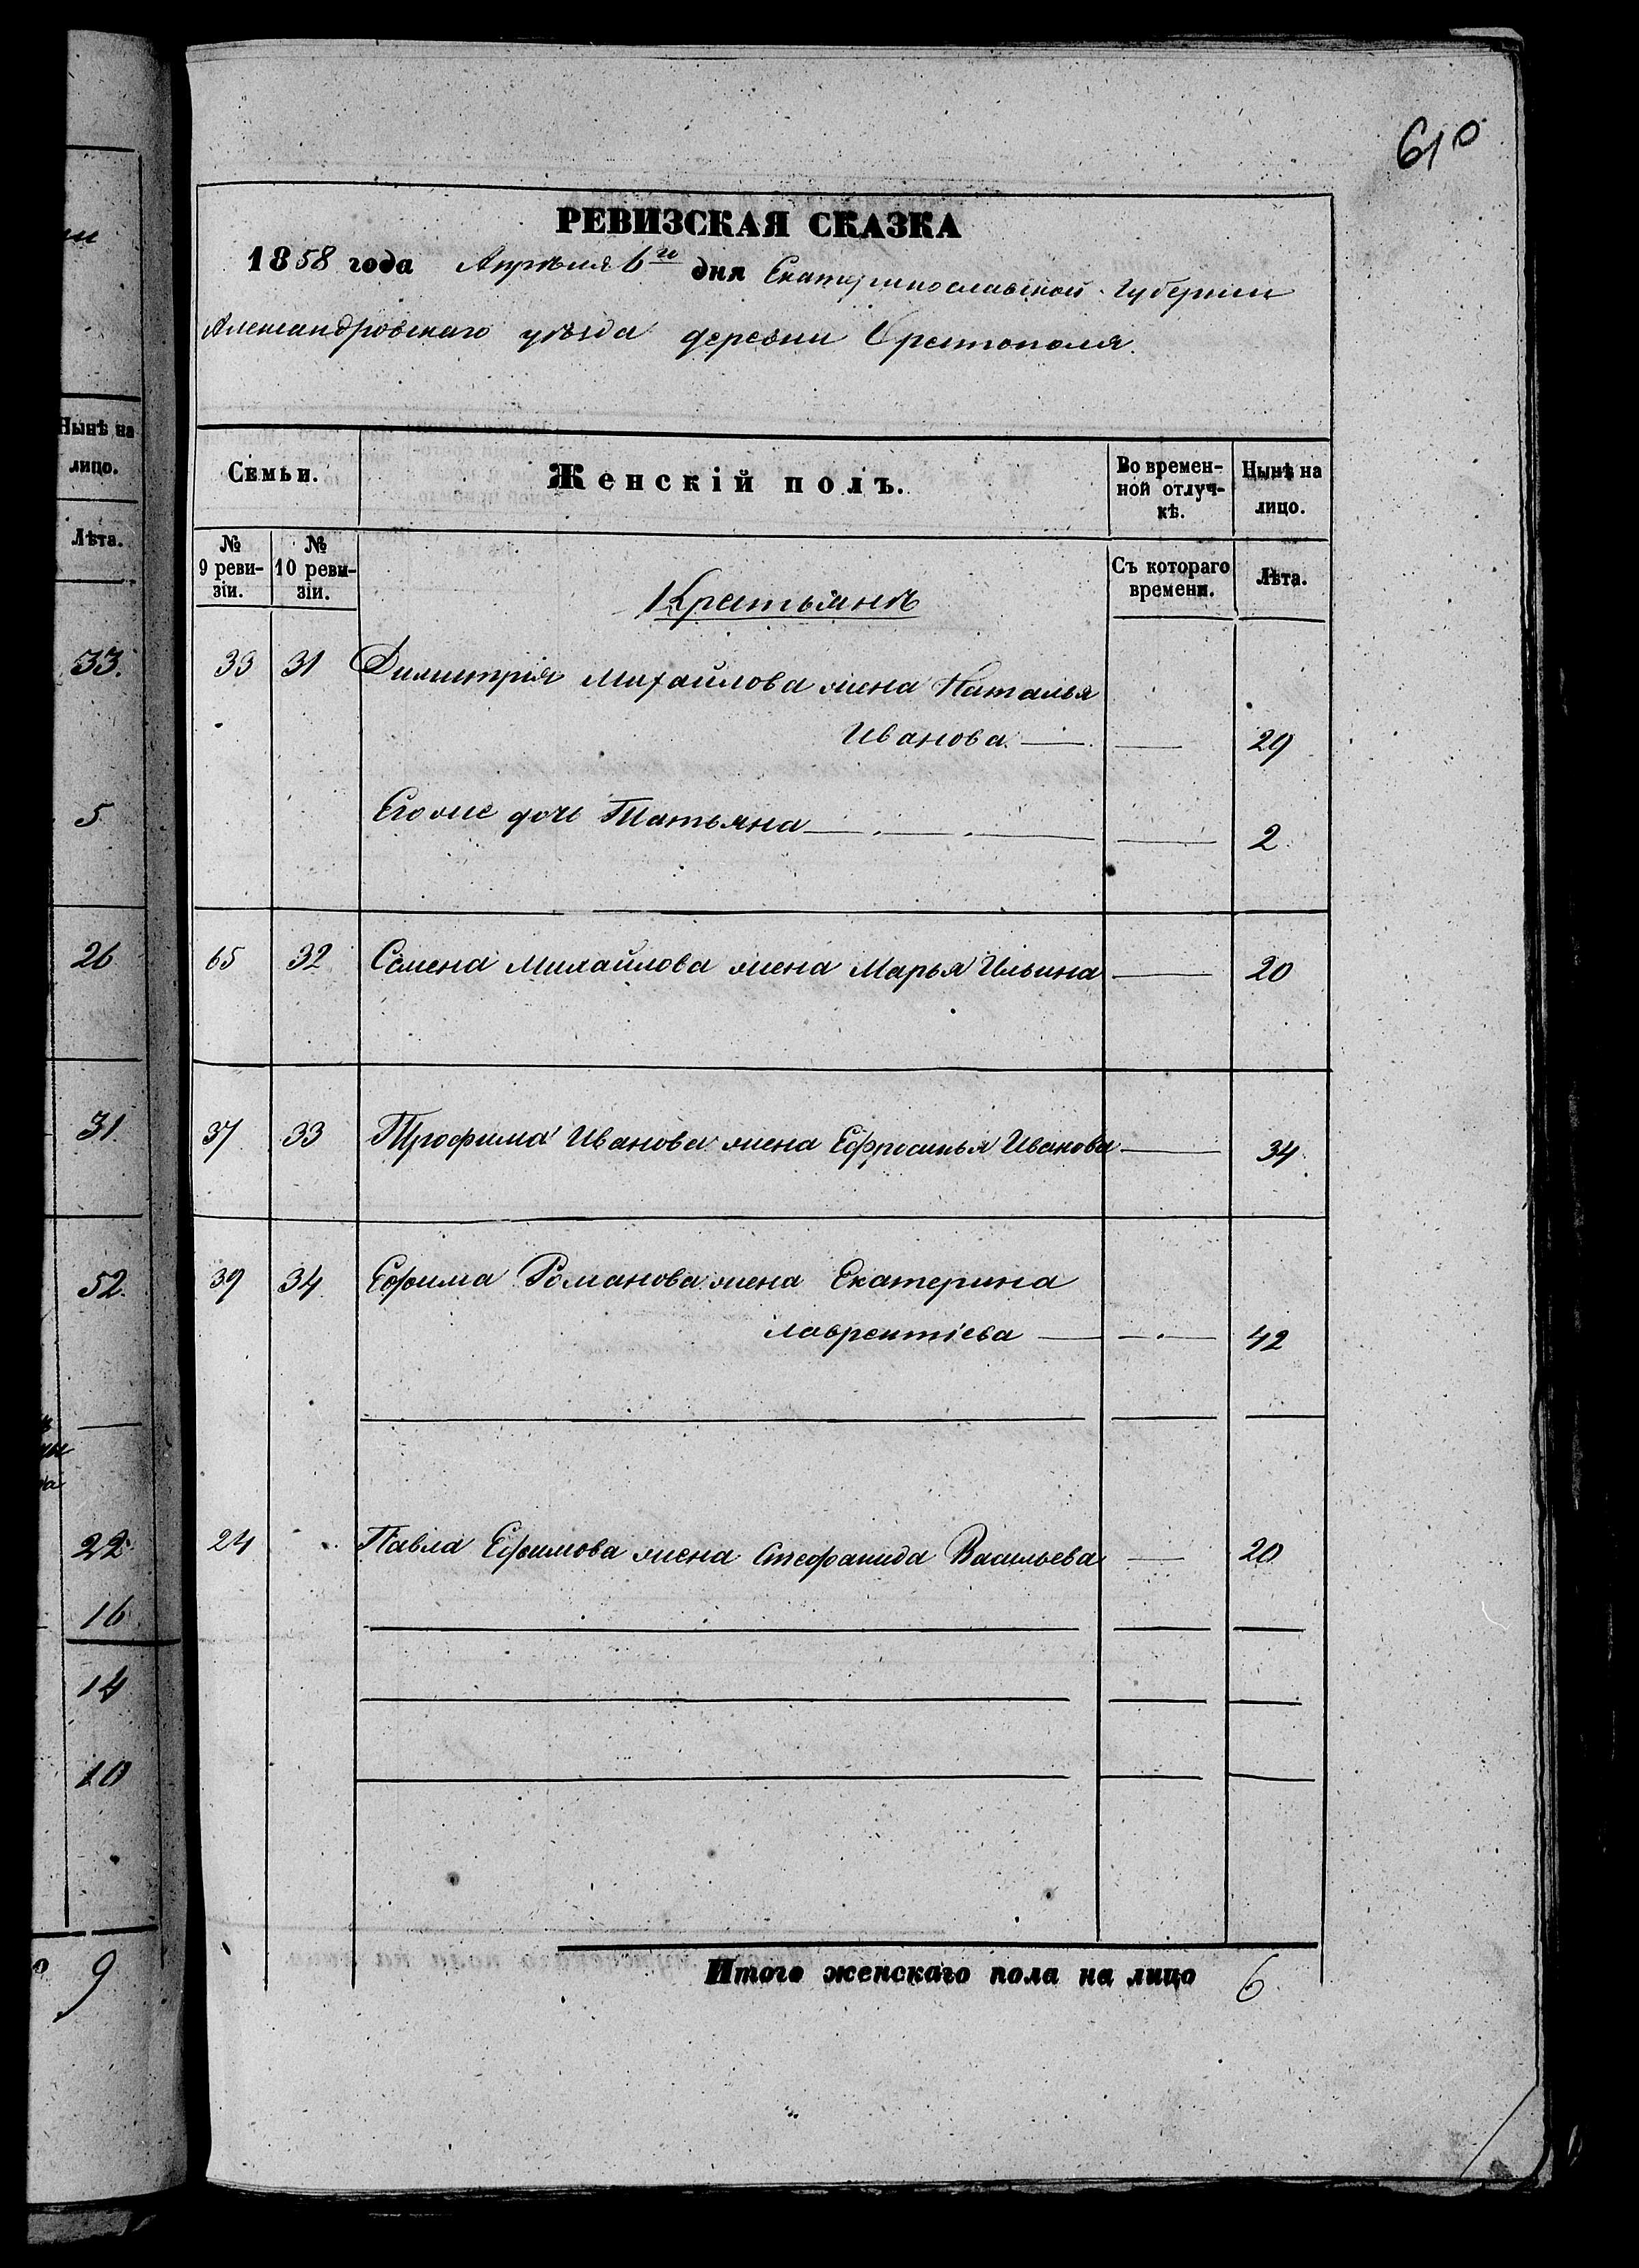 610
РЕВИЗСКАЯ СКАЗКА
1858 года Апрѣля 6го дня Екатеринославской Губерніи
Александровскаго уѣзда деревни Орестополя.
Семьи.
Женскій полъ.
Во времен-
ной отлуч-
кѣ.
Нынѣ на
лицо.
№
9 реви-
зіи.
№
10 реви-
зіи.
Съ котораго
времени.
Лѣта.
Крестьянъ
33 31 Димитрія Михайлова жена Наталья
Иванова 29
Его же дочь Татьяна 2
65 32 Семена Михайлова жена Марья Ильина 20
37 33 Трофима Иванова жена Ефросинья Иванова 34
39 34 Ефима Романова жена Екатерина
Лаврентіева 42
24 Павла Ефимова жена Стефанида Васильева 20
Итого женскаго пола на лицо 6
Нынѣ на
лицо.
Лѣта.
33.
5
26
31
52
22
16
14
10
9